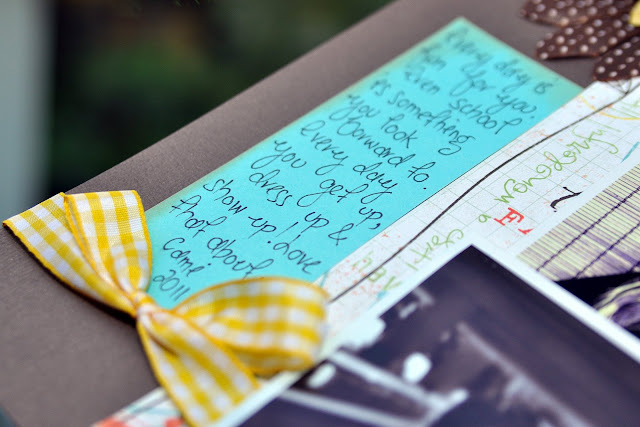 Every day is
fun for you.
Even school
is something
you look
forward to.
Every day
you get up,
dress up &
show up! Love
that about
Came
2011
Wonderful
7
F
a